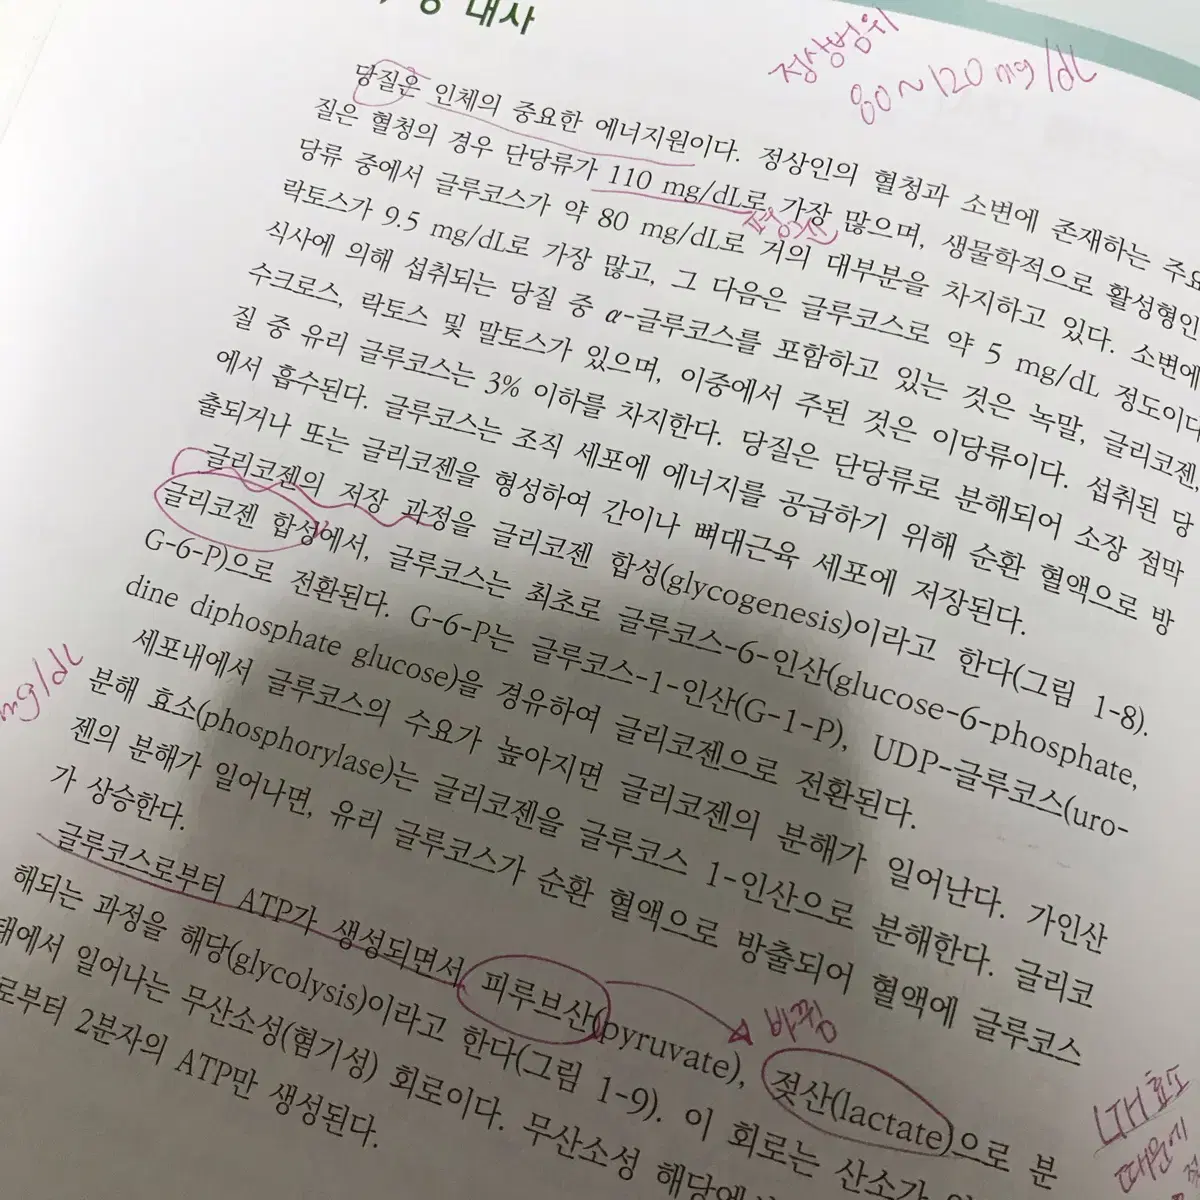 대사
정상범위
80~120mg/dL
당질은 인체의 중요한 에너지원이다. 정상인의 혈청과 소변에 존재하는 주요
질은 혈청의 경우 단당류가 110 mg/dL로 가장 많으며, 생물학적으로 활성형인
당류 중에서 글루코스가 약 80 mg/dL로 거의 대부분을 차지하고 있다. 소변에
락토스가 9.5 mg/dL로 가장 많고, 그 다음은 글루코스로 약 5 mg/dL 정도이다
식사에 의해 섭취되는 당질 중 α-글루코스를 포함하고 있는 것은 녹말, 글리코젠,
수크로스, 락토스 및 말토스가 있으며, 이중에서 주된 것은 이당류이다. 섭취된 당
질 중 유리 글루코스는 3% 이하를 차지한다. 당질은 단당류로 분해되어 소장 점막
에서 흡수된다. 글루코스는 조직 세포에 에너지를 공급하기 위해 순환 혈액으로 방
출되거나 또는 글리코젠을 형성하여 간이나 뼈대근육 세포에 저장된다.
글리코젠의 저장 과정을 글리코젠 합성(glycogenesis)이라고 한다(그림 1-8).
글리코젠 합성에서, 글루코스는 최초로 글루코스-6-인산(glucose-6-phosphate,
G-6-P)으로 전환된다. G-6-P는 글루코스-1-인산(G-1-P), UDP-글루코스(uro-
dine diphosphate glucose)을 경유하여 글리코젠으로 전환된다.
세포내에서 글루코스의 수요가 높아지면 글리코젠의 분해가 일어난다. 가인산
분해 효소(phosphorylase)는 글리코젠을 글루코스 1-인산으로 분해한다. 글리코
젠의 분해가 일어나면, 유리 글루코스가 순환 혈액으로 방출되어 혈액에 글루코스
가 상승한다.
mg/dL
글루코스로부터 ATP가 생성되면서 피루브산(pyruvate), 젖산(lactate)으로 분
바뀜
해되는 과정을 해당(glycolysis)이라고 한다(그림 1-9). 이 회로는 산소가
태에서 일어나는 무산소성(혐기성) 회로이다. 무산소성 해당에서
로부터 2분자의 ATP만 생성된다.
효소
때문에